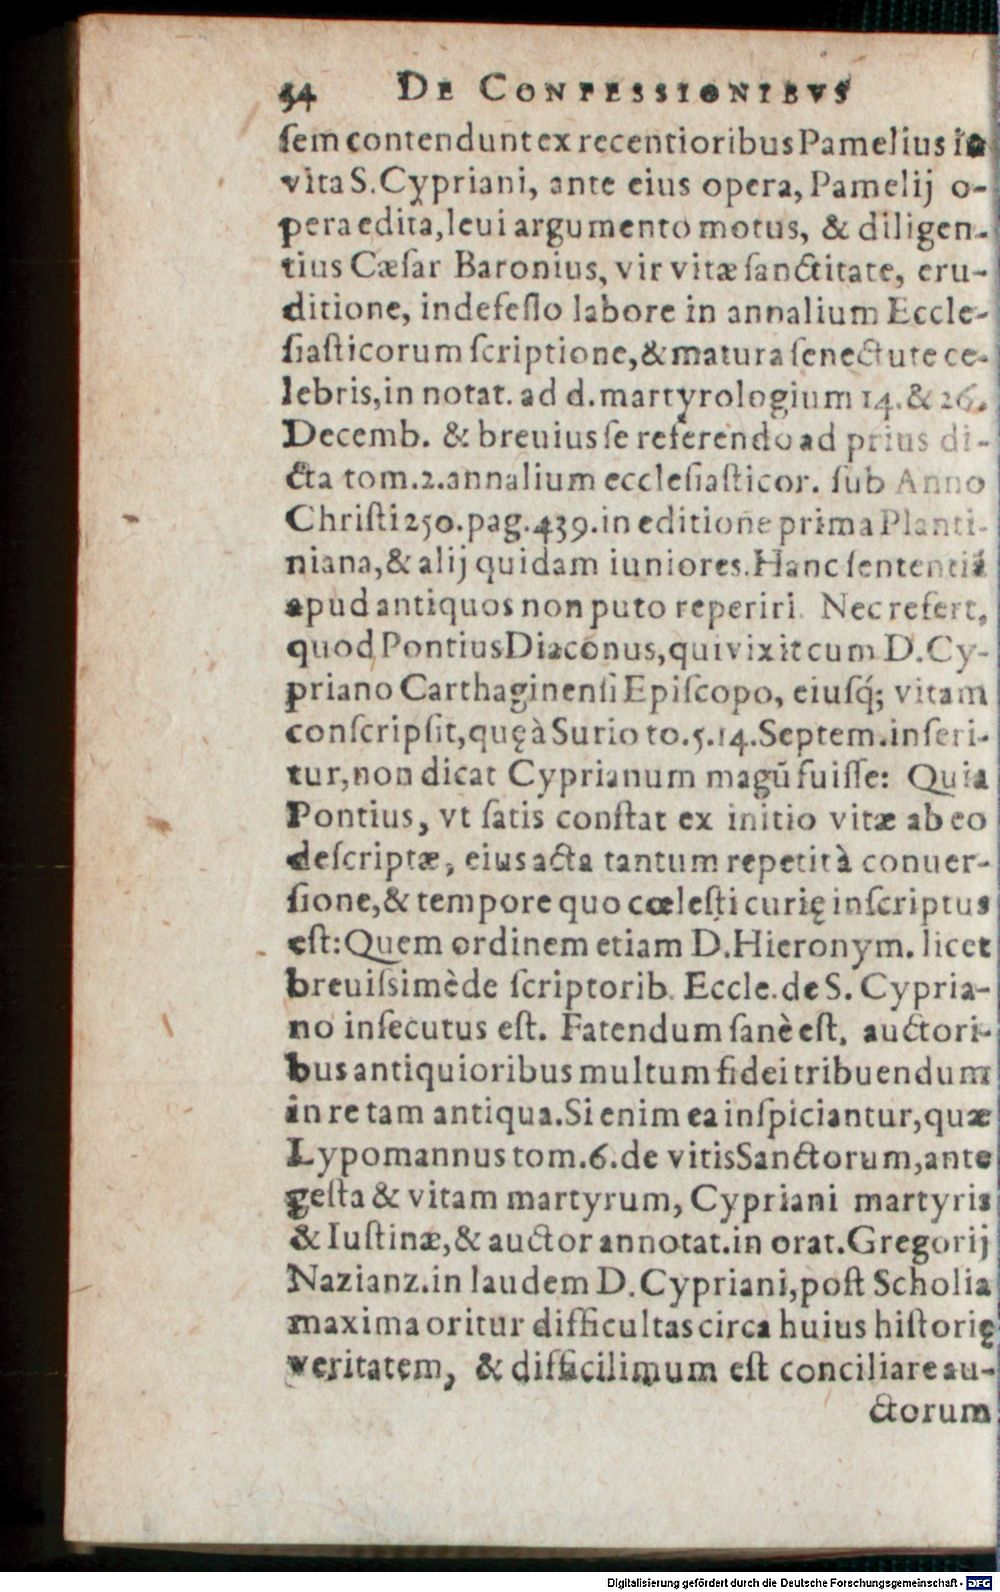 54 DE CONFESSIONIBVS
ſem contendunt ex recentioribus Pamelius in
vita S. Cypriani, ante eius opera, Pamelij o-
pera edita, leui argumento motus, & diligen-
tius Cæſar Baronius, vir vitæ ſanctitate, eru-
ditione, indefeſſo labore in annalium Eccle-
ſiaſticorum ſcriptione, & matura ſenectute ce-
lebris, in notat. ad d. martyrologium 14. & 26.
Decemb. & breuius ſe referendo ad prius di-
cta tom. 2. annalium eccleſiaſticor. ſub Anno
Chriſti 250. pag. 439. in editione prima Planti-
niana, & alij quidam iuniores. Hanc ſententiã
apud antiquos non puto reperiri. Nec refert,
quod Pontius Diaconus, qui vixit cum D. Cy-
priano Carthaginenſi Epiſcopo, eiuſq́; vitam
conſcripſit, quę à Surio to. 5. 14. Septem. inſeri-
tur, non dicat Cyprianum magũ fuiſſe: Quia
Pontius, vt ſatis conſtat ex initio vitæ ab eo
deſcriptæ, eius acta tantum repetit à conuer-
ſione, & tempore quo cœleſti curię inſcriptus
eſt: Quem ordinem etiam D. Hieronym. licet
breuiſsimè de ſcriptorib. Eccle. de S. Cypria-
no inſecutus eſt. Fatendum ſanè eſt, auctori-
bus antiquioribus multum fidei tribuendum
in re tam antiqua. Si enim ea inſpiciantur, quæ
Lypomannus tom. 6. de vitis Sanctorum, ante
geſta & vitam martyrum, Cypriani martyris
& Iuſtinæ, & auctor annotat. in orat. Gregorij
Nazianz. in laudem D. Cypriani, poſt Scholia
maxima oritur difficultas circa huius hiſtorię
veritatem, & difficilimum eſt conciliare au-
ctorum
Digitalisierung gefördert durch die Deutsche Forschungsgemeinschaft - DFG